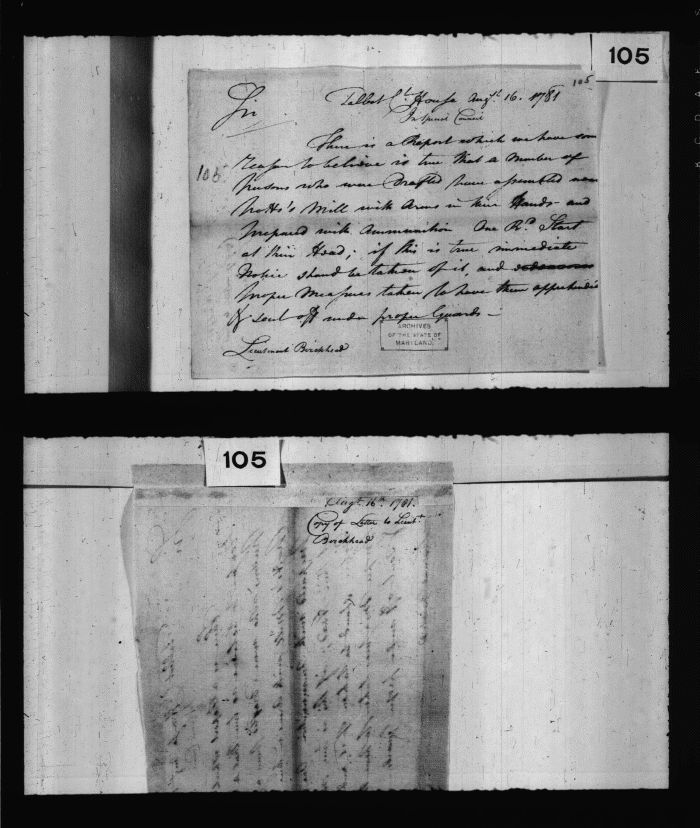 105
105
Talbot Ct. House Augt. 16. 1781
Sir
In Special Council
105
There is a Report which we have som
reason to believe is true that a Number of
persons who were Drafted have assembled near
Mill with Arms in their Hands and
prepared with Ammunition One Rd. Start
at their Head; if this is true immediate
Notice should be taken of it, and
proper Measures taken to have them apprehended
& sent off under proper Guards –
Lieutenant Birckhead
ARCHIVES
OF THE STATE OF
MARYLAND.
105
Augt. 16th. 1781.
Copy of Letter to Lieut.
Birckhead